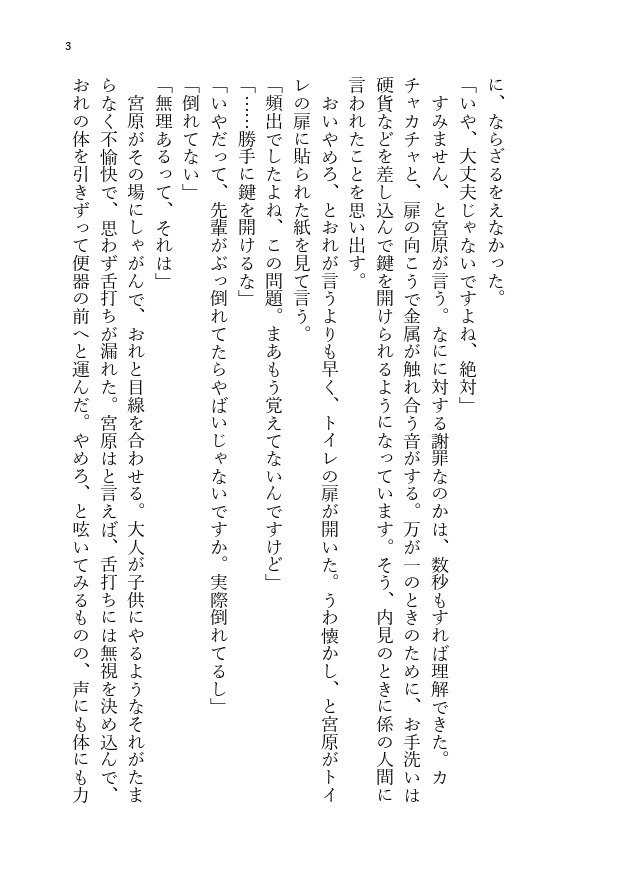 3
に、ならざるをえなかった。
「いや、大丈夫じゃないですよね、絶対」
　すみません、と宮原が言う。なにに対する謝罪なのかは、数秒もすれば理解できた。カ
チャカチャと、扉の向こうで金属が触れ合う音がする。万が一のときのために、お手洗いは
硬貨などを差し込んで鍵を開けられるようになっています。そう、内見のときに係の人間に
言われたことを思い出す。
　おいやめろ、とおれが言うよりも早く、トイレの扉が開いた。うわ懐かし、と宮原がトイ
レの扉に貼られた紙を見て言う。
「頻出でしたよね、この問題。まあもう覚えてないんですけど」
「……勝手に鍵を開けるな」
「いやだって、先輩がぶっ倒れてたらやばいじゃないですか。実際倒れてるし」
「倒れてない」
「無理あるって、それは」
　宮原がその場にしゃがんで、おれと目線を合わせる。大人が子供にやるようなそれがたま
らなく不愉快で、思わず舌打ちが漏れた。宮原はと言えば、舌打ちには無視を決め込んで、
おれの体を引きずって便器の前へと運んだ。やめろ、と呟いてみるものの、声にも体にも力